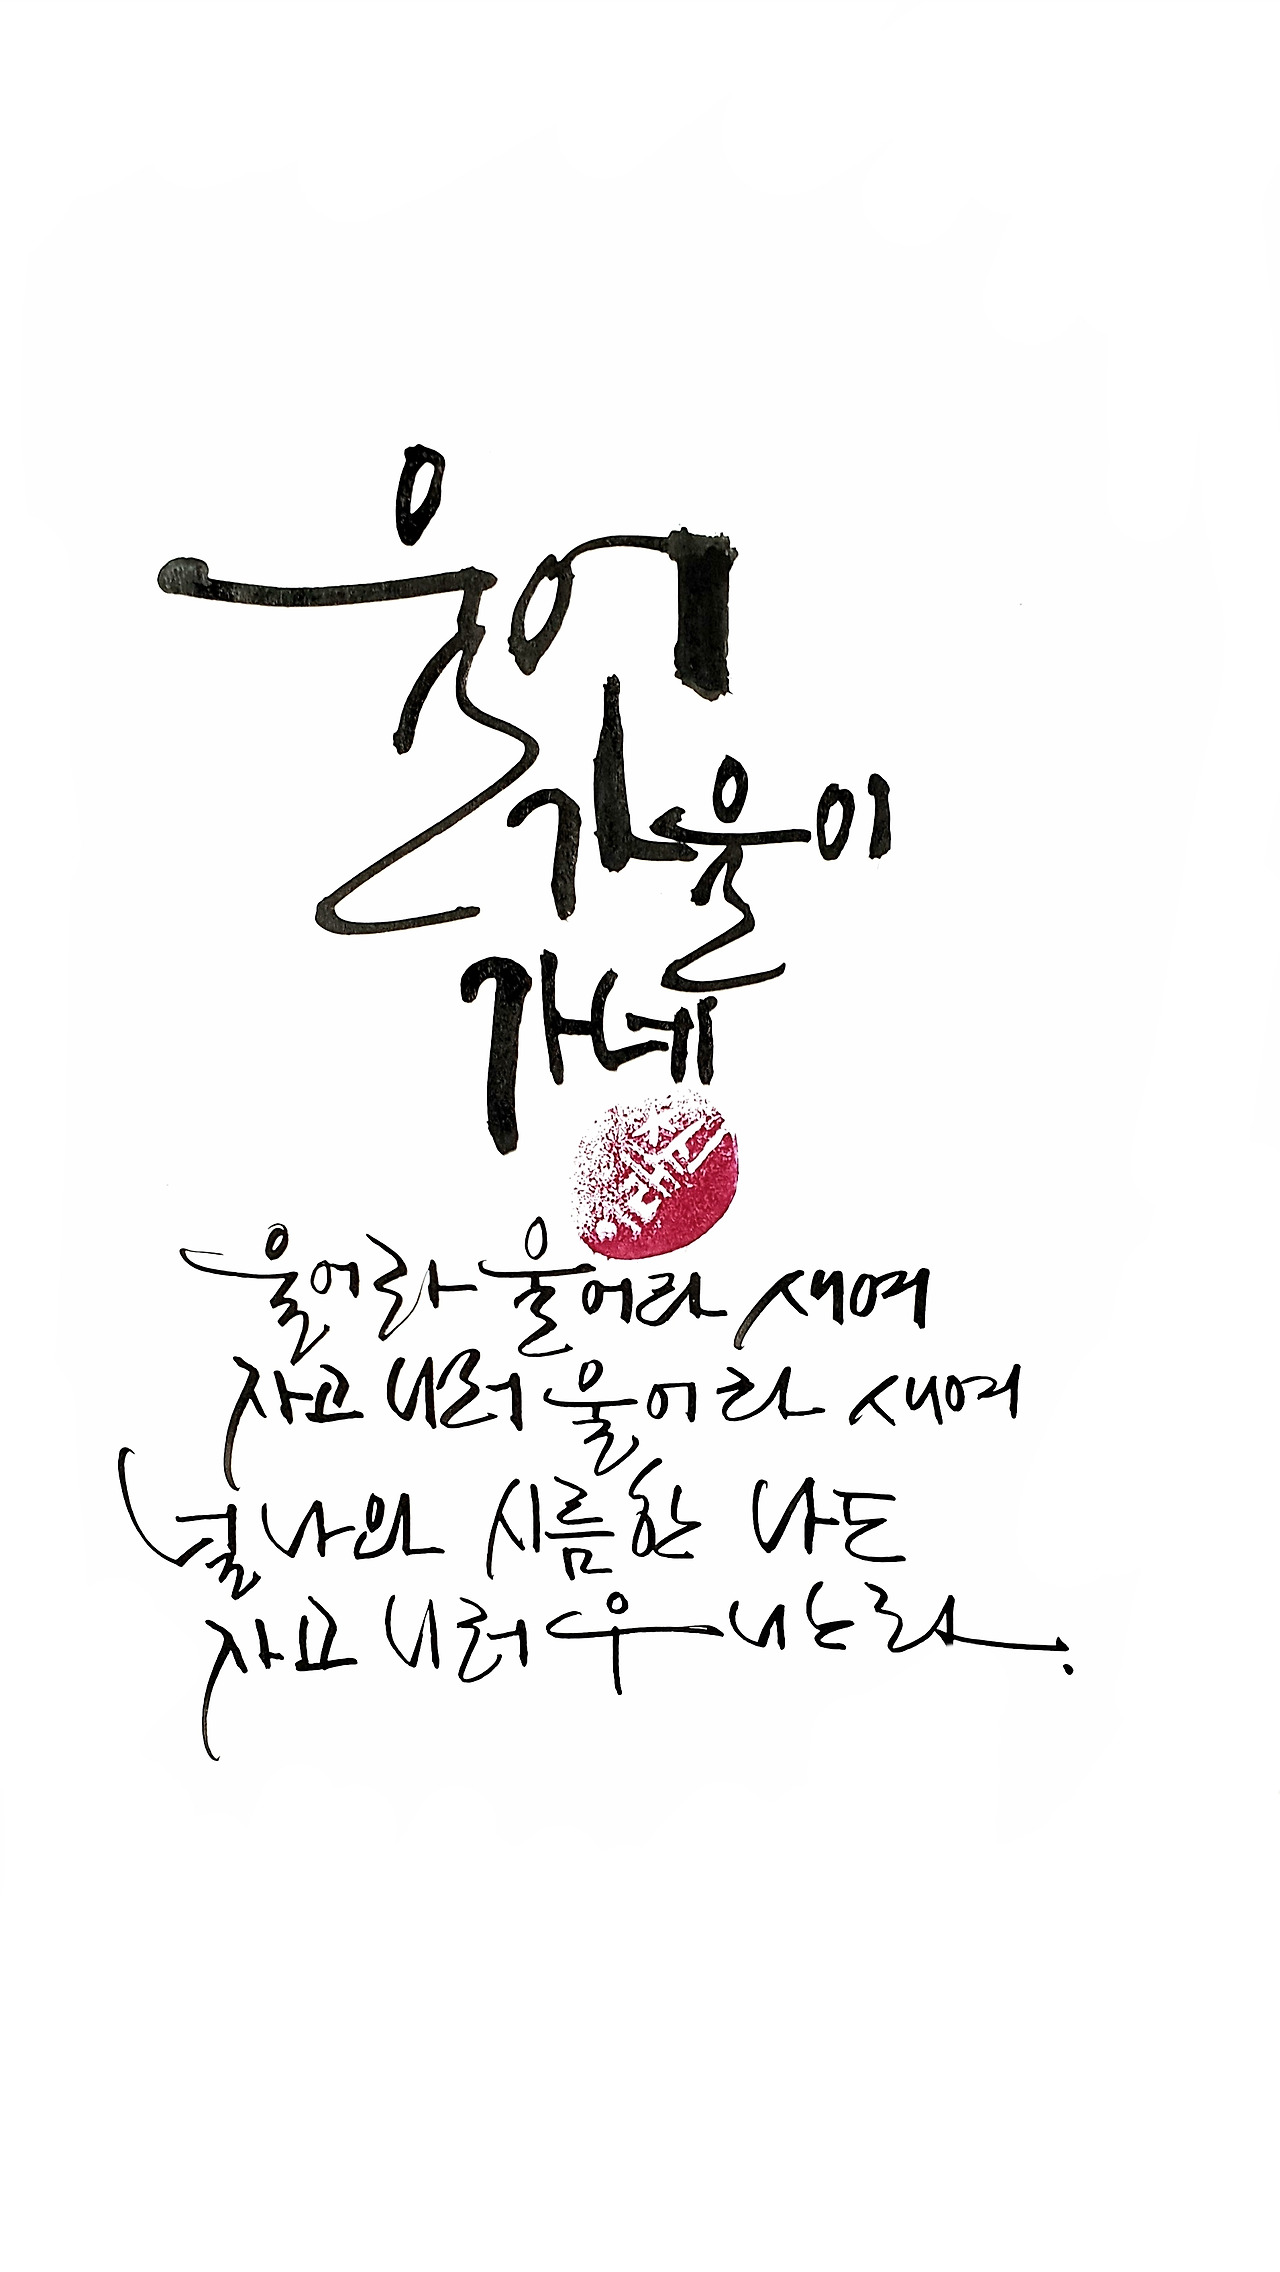 울어
가을이
가네
울어라 울어라 새여
자고 니러 울어라 새여
널나와 시름한 나도
자고 니러 우니노라.